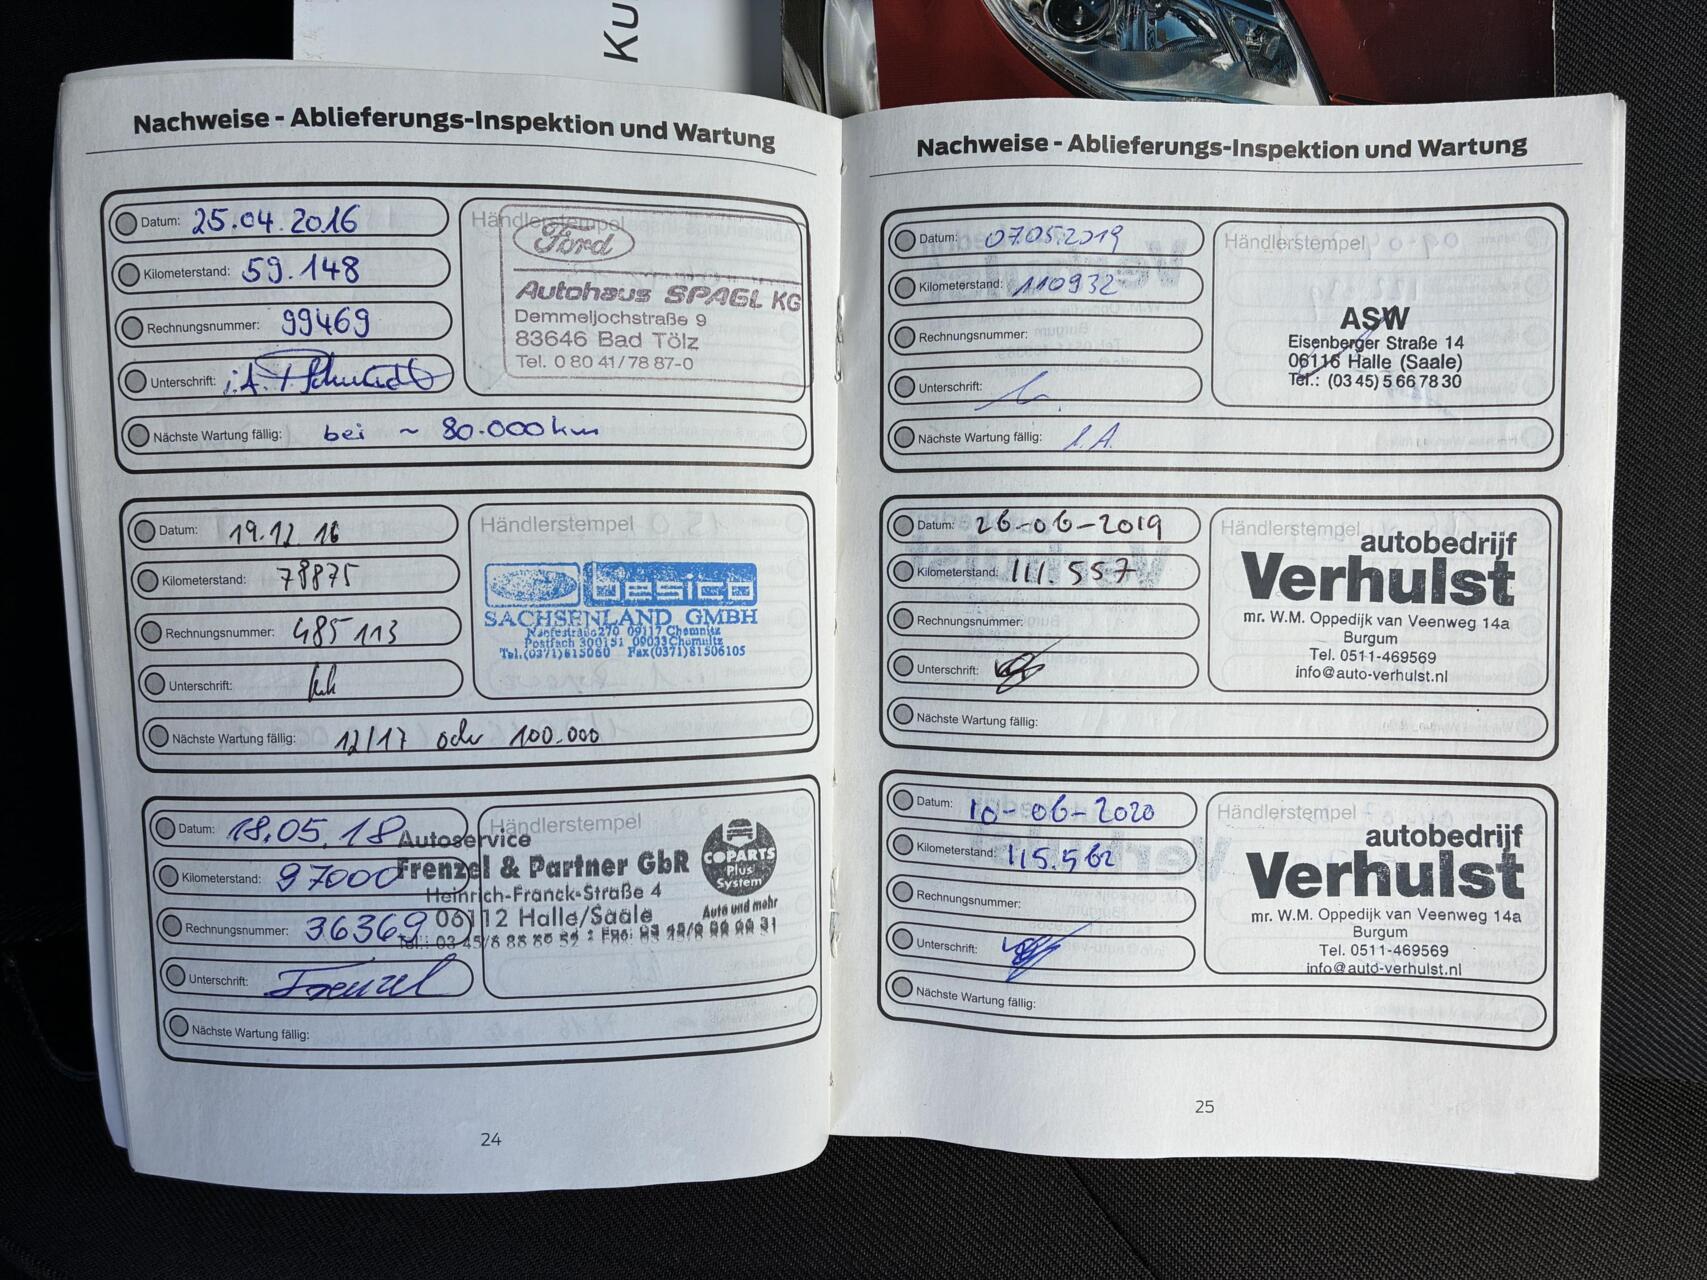 Ku
Nachweise - Ablieferungs-Inspektion und Wartung
Datum: 25.04.2016
Kilometerstand: 59.148
Rechnungsnummer: 99469
Unterschrift: i.A.
Nächste Wartung fällig: bei ~ 80.000 km
Händlerstempel
Ford
Autohaus SPAGL KG
Demmeljochstraße 9
83646 Bad Tölz
Tel. 0 80 41/78 87-0
Datum: 19.12.16
Kilometerstand: 78875
Rechnungsnummer: 485113
Unterschrift:
Nächste Wartung fällig: 12/17 oder 100.000
Händlerstempel
besico
SACHSENLAND GMBH
270 09117 Chemnitz
Postfach 300151 09033 Chemnitz
Tel.(0371)815060 Fax(0371)81506105
Datum: 18.05.18
Kilometerstand: 97000
Rechnungsnummer: 36369
Unterschrift: Frenzel
Nächste Wartung fällig:
Händlerstempel
Autoservice
Frenzel & Partner GbR
Heinrich-Franck-Straße 4
06112 Halle/Saale
COPARTS
Plus
System
Auto und mehr
24
Nachweise - Ablieferungs-Inspektion und Wartung
Datum: 07.05.2019
Kilometerstand: 110932
Rechnungsnummer:
Unterschrift:
Nächste Wartung fällig: i.A.
Händlerstempel
ASW
Eisenberger Straße 14
06116 Halle (Saale)
Tel.: (03 45) 5 66 78 30
Datum: 26-06-2019
Kilometerstand: 111.557
Rechnungsnummer:
Unterschrift:
Nächste Wartung fällig:
Händlerstempel
autobedrijf
Verhulst
mr. W.M. Oppedijk van Veenweg 14a
Burgum
Tel. 0511-469569
info@auto-verhulst.nl
Datum: 10-06-2020
Kilometerstand: 115.562
Rechnungsnummer:
Unterschrift:
Nächste Wartung fällig:
Händlerstempel
autobedrijf
Verhulst
mr. W.M. Oppedijk van Veenweg 14a
Burgum
Tel. 0511-469569
info@auto-verhulst.nl
25